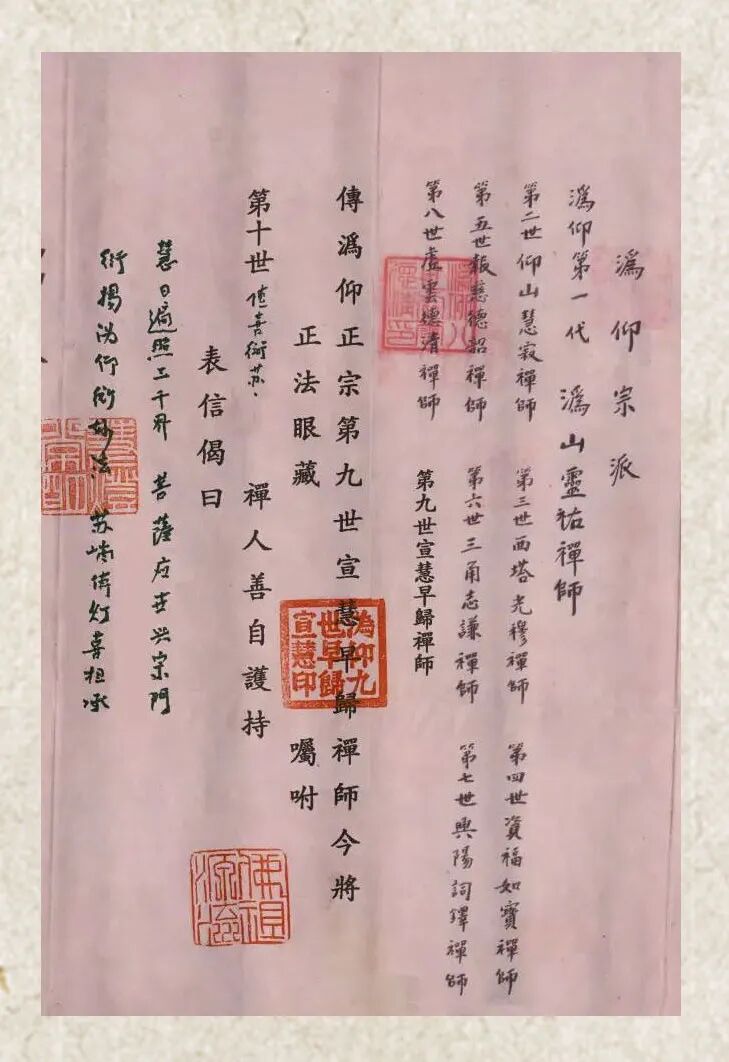 溈仰宗派
溈仰第一代 溈山靈祐禪師
第二世仰山慧寂禪師 第三世西塔光穆禪師 第四世資福如寶禪師
第五世報慈德韶禪師 第六世三角志謙禪師 第七世興陽詞鐸禪師
第八世虛雲德清禪師 第九世宣慧早歸禪師
傳溈仰正宗第九世宣慧早歸禪師今將
正法眼藏 囑咐
第十世 禪人善自護持
表信偈曰
慧日遍照三千界 菩薩应世兴宗门
衍揚沩仰微妙法 传灯喜担承
溈仰九
世早歸
宣慧印
佛祖